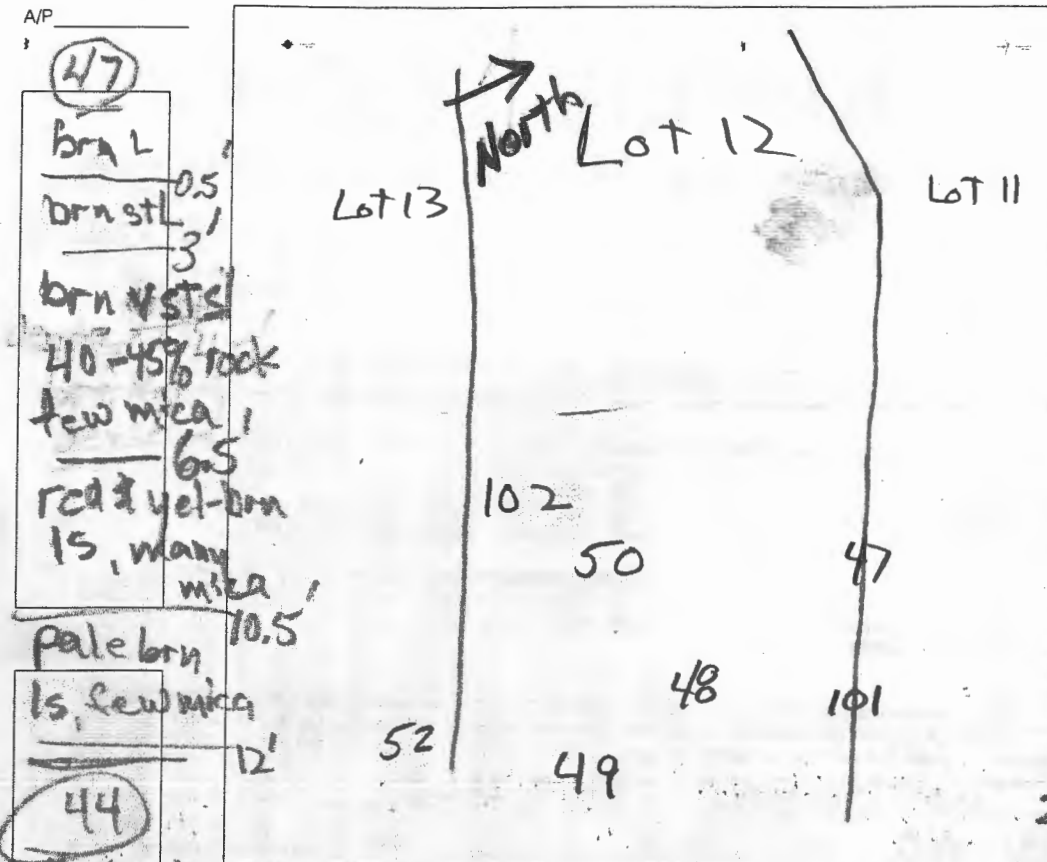 A/P
47
brn L
0.5'
brn stL
3'
brn vstsl
40-45% rock
few mica
6.5'
red & yel-brn
ls, many
mica
10.5'
pale brn
ls, few mica
12'
44
North
Lot 12
Lot 13
Lot 11
102
50
47
48
101
52
49